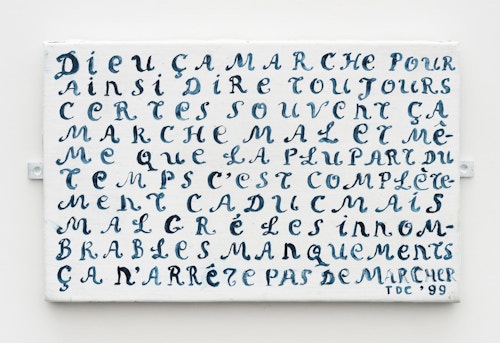 DIEU ÇA MARCHE POUR
AINSI DIRE TOUJOURS
CERTES SOUVENT ÇA
MARCHE MAL ET MÊ-
ME QUE LA PLUPART DU
TEMPS C'EST COMPLÈTE-
MENT CADUC MAIS
MALGRÉ LES INNOM-
BRABLES MANQUEMENTS
ÇA N'ARRÊTE PAS DE MARCHER
TDC '99